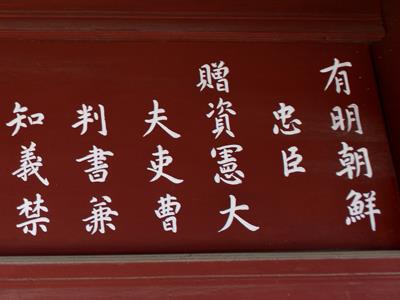 有明朝鮮
忠臣
贈資憲大
夫吏曹
判書兼
知義禁